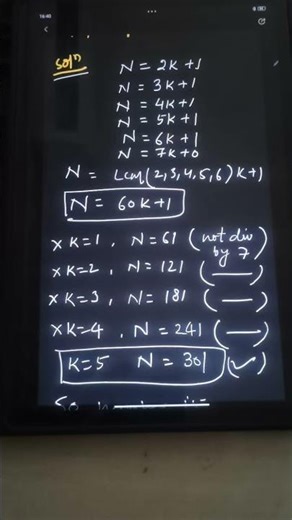 16:40
Sol?
N = 2K+1
N = 3K+1
N = 4K+1
N = 5K+1
N = 6K+1
N = 7K+0
N = Lcm(2,3,4,5,6)K+1
N = 60K+1
×K=1, N=61 (not div by 7)
×K=2, N=121 (—)
×K=3, N=181 (—)
×K=4, N=241 (—)
K=5 N=301 (✓)
So